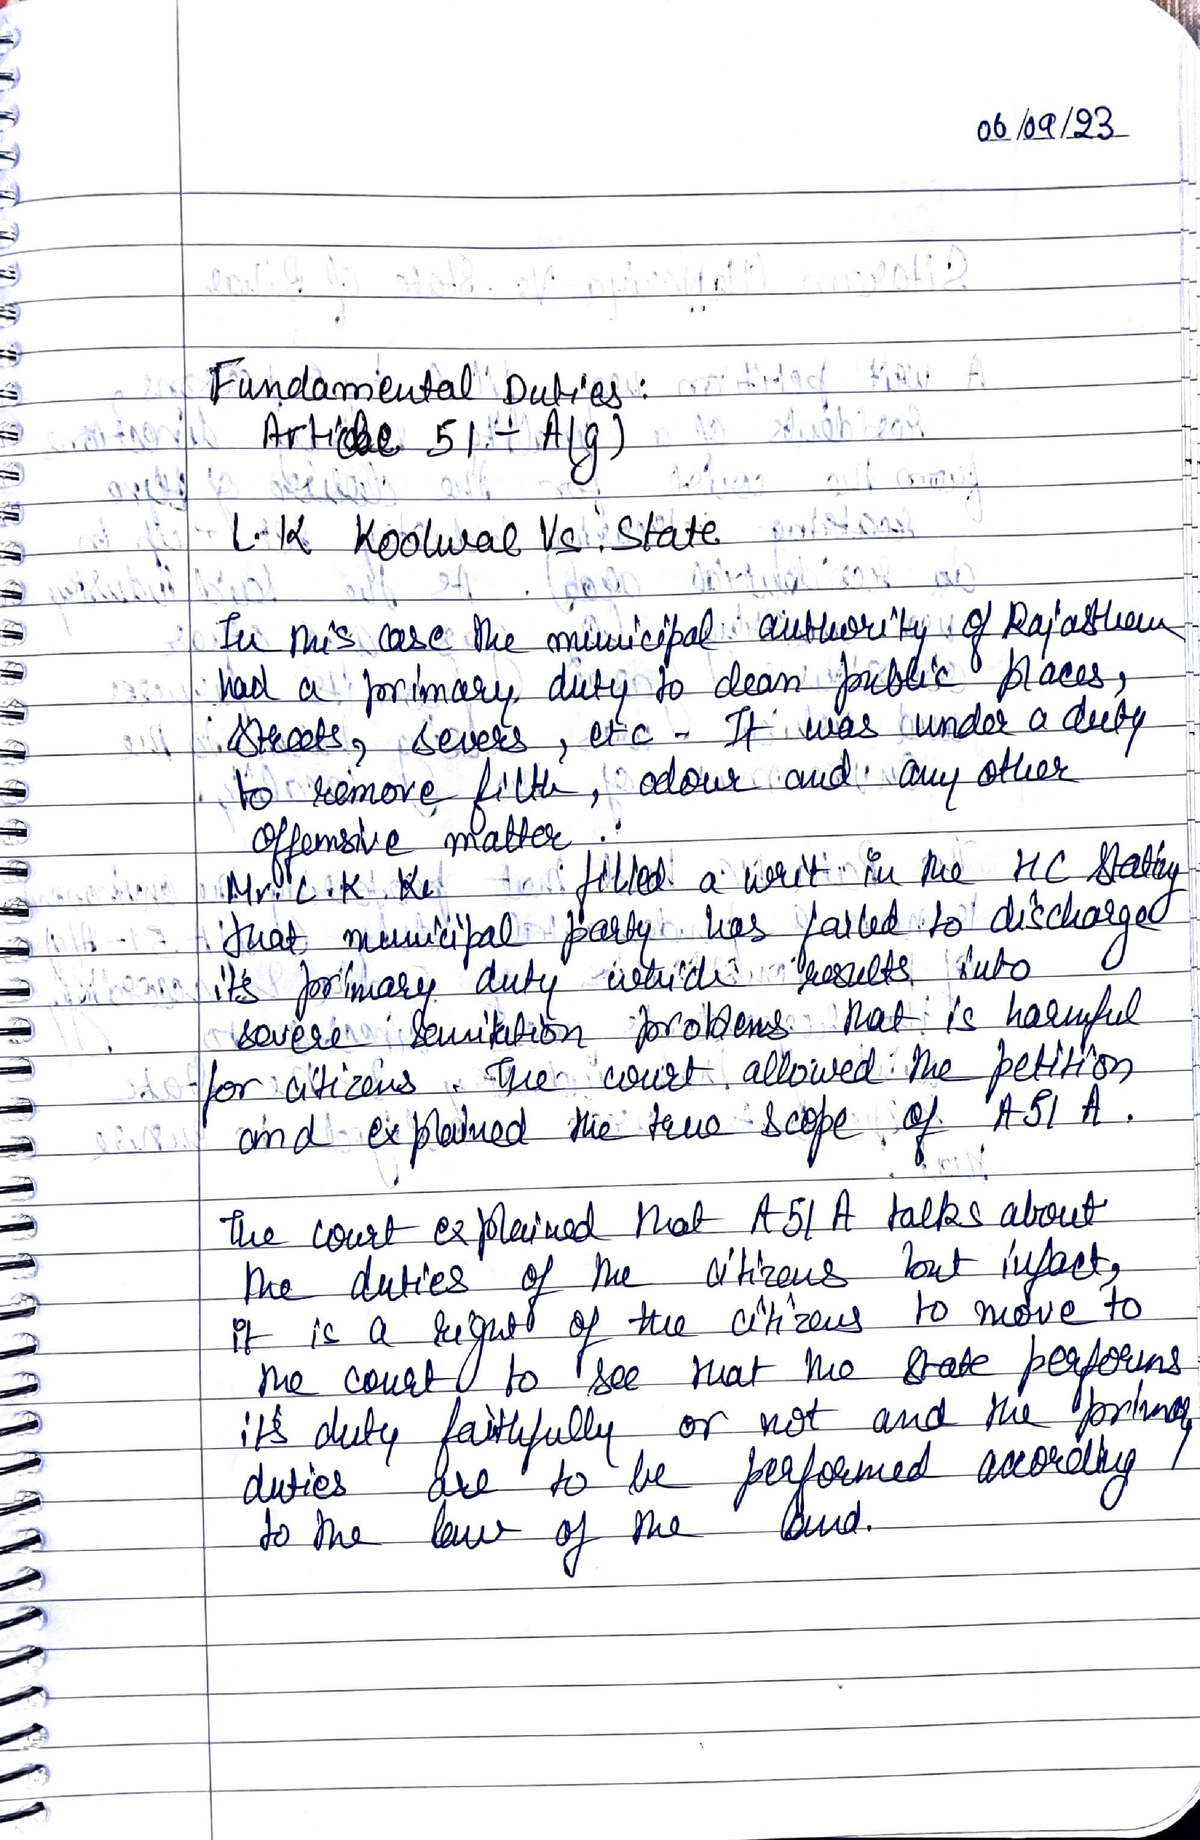 06/09/23
Fundamental Duties:
Article 51-A(g)
L.K Koolwal Vs. State
In this case the municipal authority of Rajasthan
had a primary duty to clean public places,
streets, severs, etc - It was under a duty
to remove filth, odour and any other
offensive matter.
Mr. L.K. Ke filled a writ in the HC Stating
that municipal party has failed to discharge
its primary duty which results into
severe sanitation problems that is harmful
for citizens. The court allowed the petition
and explained the true scope of A51A.
The court explained that A51A talks about
the duties of the citizens but infact,
it is a right of the citizens to move to
the court to see that the state performs
it's duty faithfully or not and the primary
duties are to be performed according
to the law of the land.